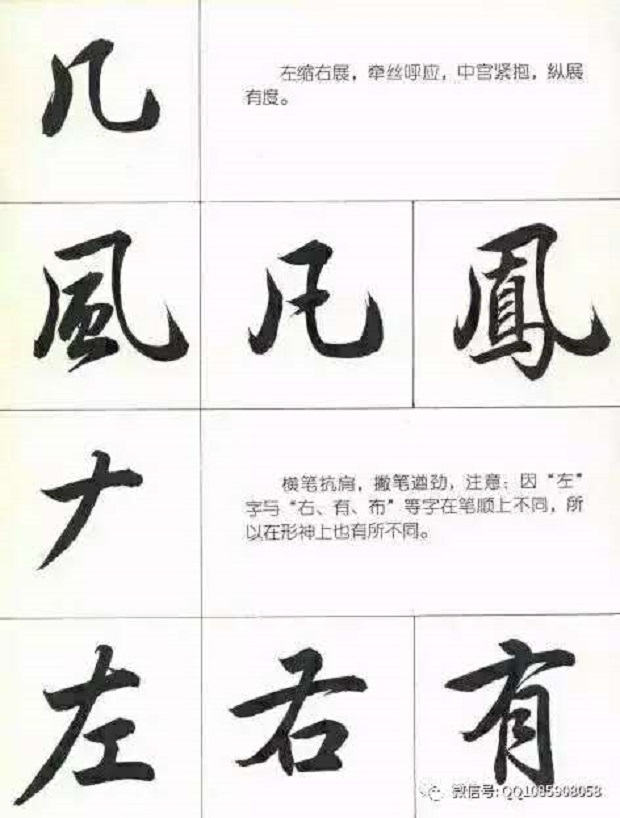 几
左缩右展，牵丝呼应，中宫紧抱，纵展
有度。
風 凡 鳳
𠂇
横笔抗肩，撇笔遒劲，注意：因“左”
字与“右、有、布”等字在笔顺上不同，所
以在形神上也有所不同。
左 右 有
微信号:QQ1085908058